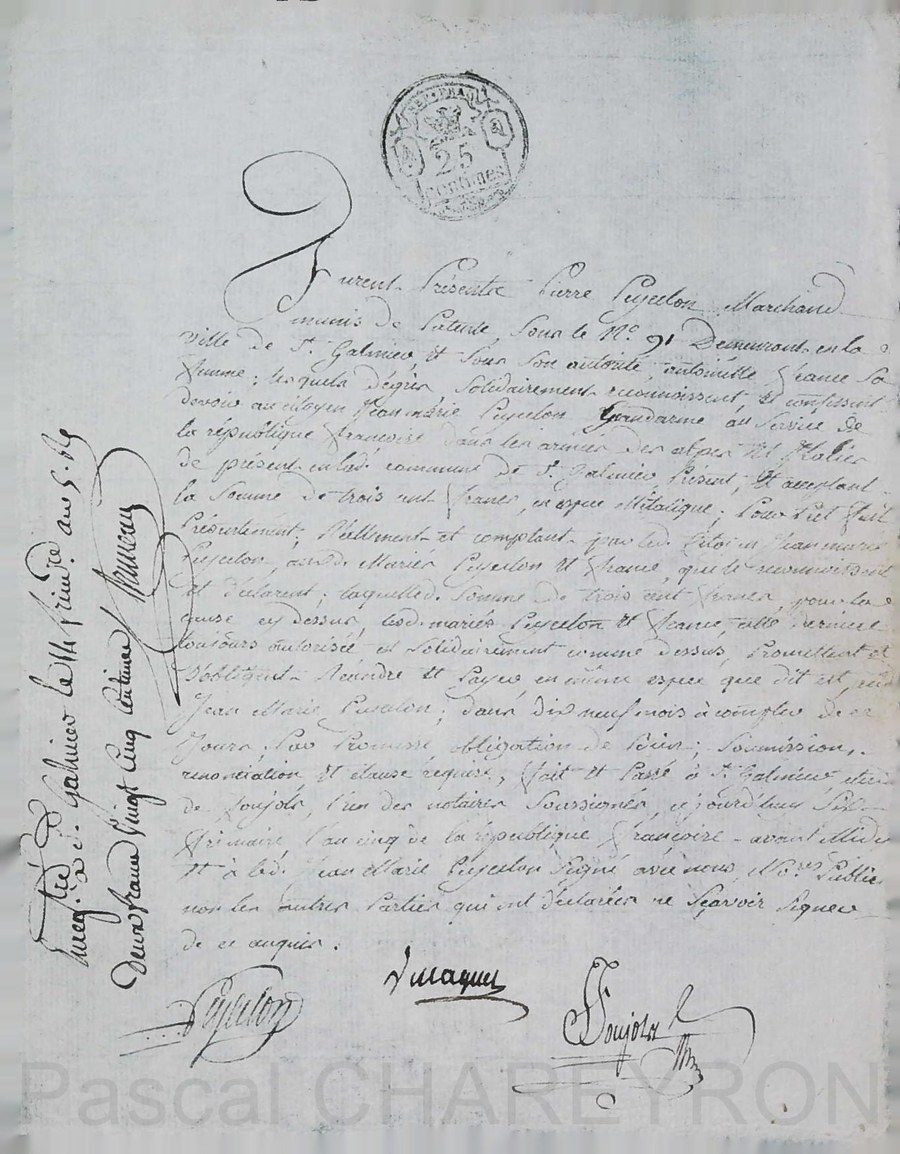 REP. FRAN.
25
centimes
Furent Présents Pierre Peycelon Marchand
munis de Patente, sous le N.º 91 Demeurant en la
ville de S.t Galmier, et sous son autorité, antoinette france sa
femme; lesquels dégrés solidairement reconnoissent et confessent
devoir au citoyen Jean marie Peycelon Gendarme au Service de
la république françoise dans les armées des alpes et Italie
de présent en lad. commune de S.t Galmier Présent, et acceptant
la Somme de trois cent francs, en espece Métalique; Pour Pret fait
Présentement, Réellement et comptant par led. Citoien Jean marie
Peycelon, auxd. Mariés Peycelon et france, que le reconnoissent
et déclarent; laquelle d. somme de trois cent francs, pour la
cause cy dessus, lesd. mariés Peycelon et france, cette derniere
toujours autorisée et Solidairement comme dessus, Promettent et
s'obligent Rendre et Payer en même espece que dit est, aud.
Jean Marie Peycelon; dans dix neuf mois à compter de ce
Jours; Par Promesse obligation de biens; Soumission,
renontiation et clause requise, fait et Passé à S.t Galmier
de Soujols, l'un des notaires Soussignés, cejourd'huy
frimaire l'an cinq de la république françoise avant Midi
et à led. Jean Marie Peycelon Signé avec nous, No.res Public
non les autres Parties qui ont déclarées ne Sçavoir Signer
de ce enquis.
Peycelon
Soujols
Enregistré à S. Galmier le 14 frimre an 5.
Deux francs Vingt Cinq Centimes
Pascal CHAREYRON